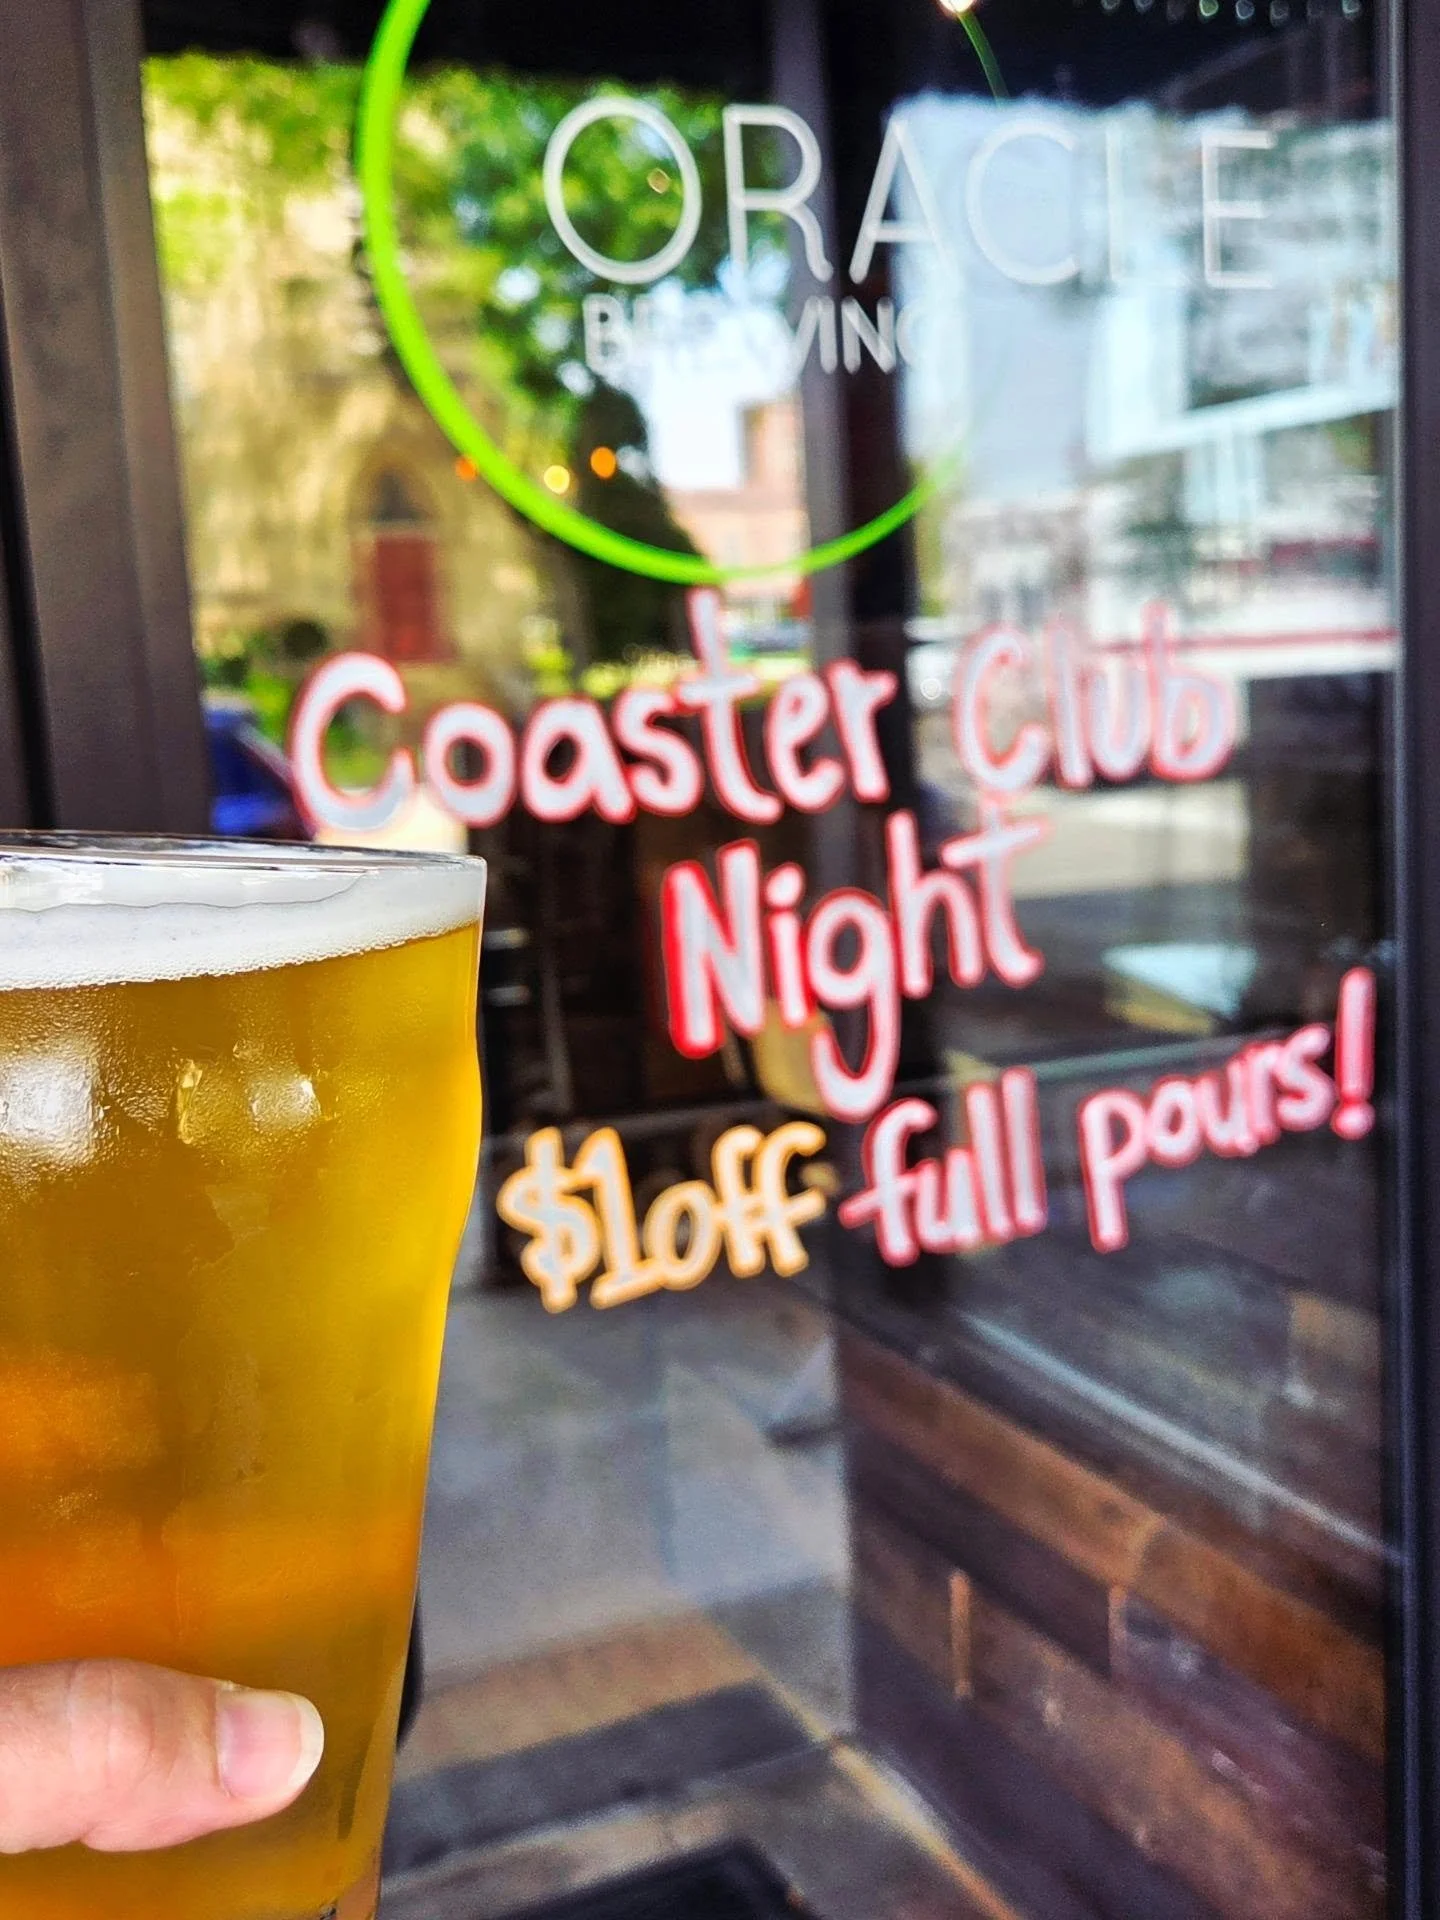 ORACLE
BREWING
Coaster Club
Night
$1 off full pours!